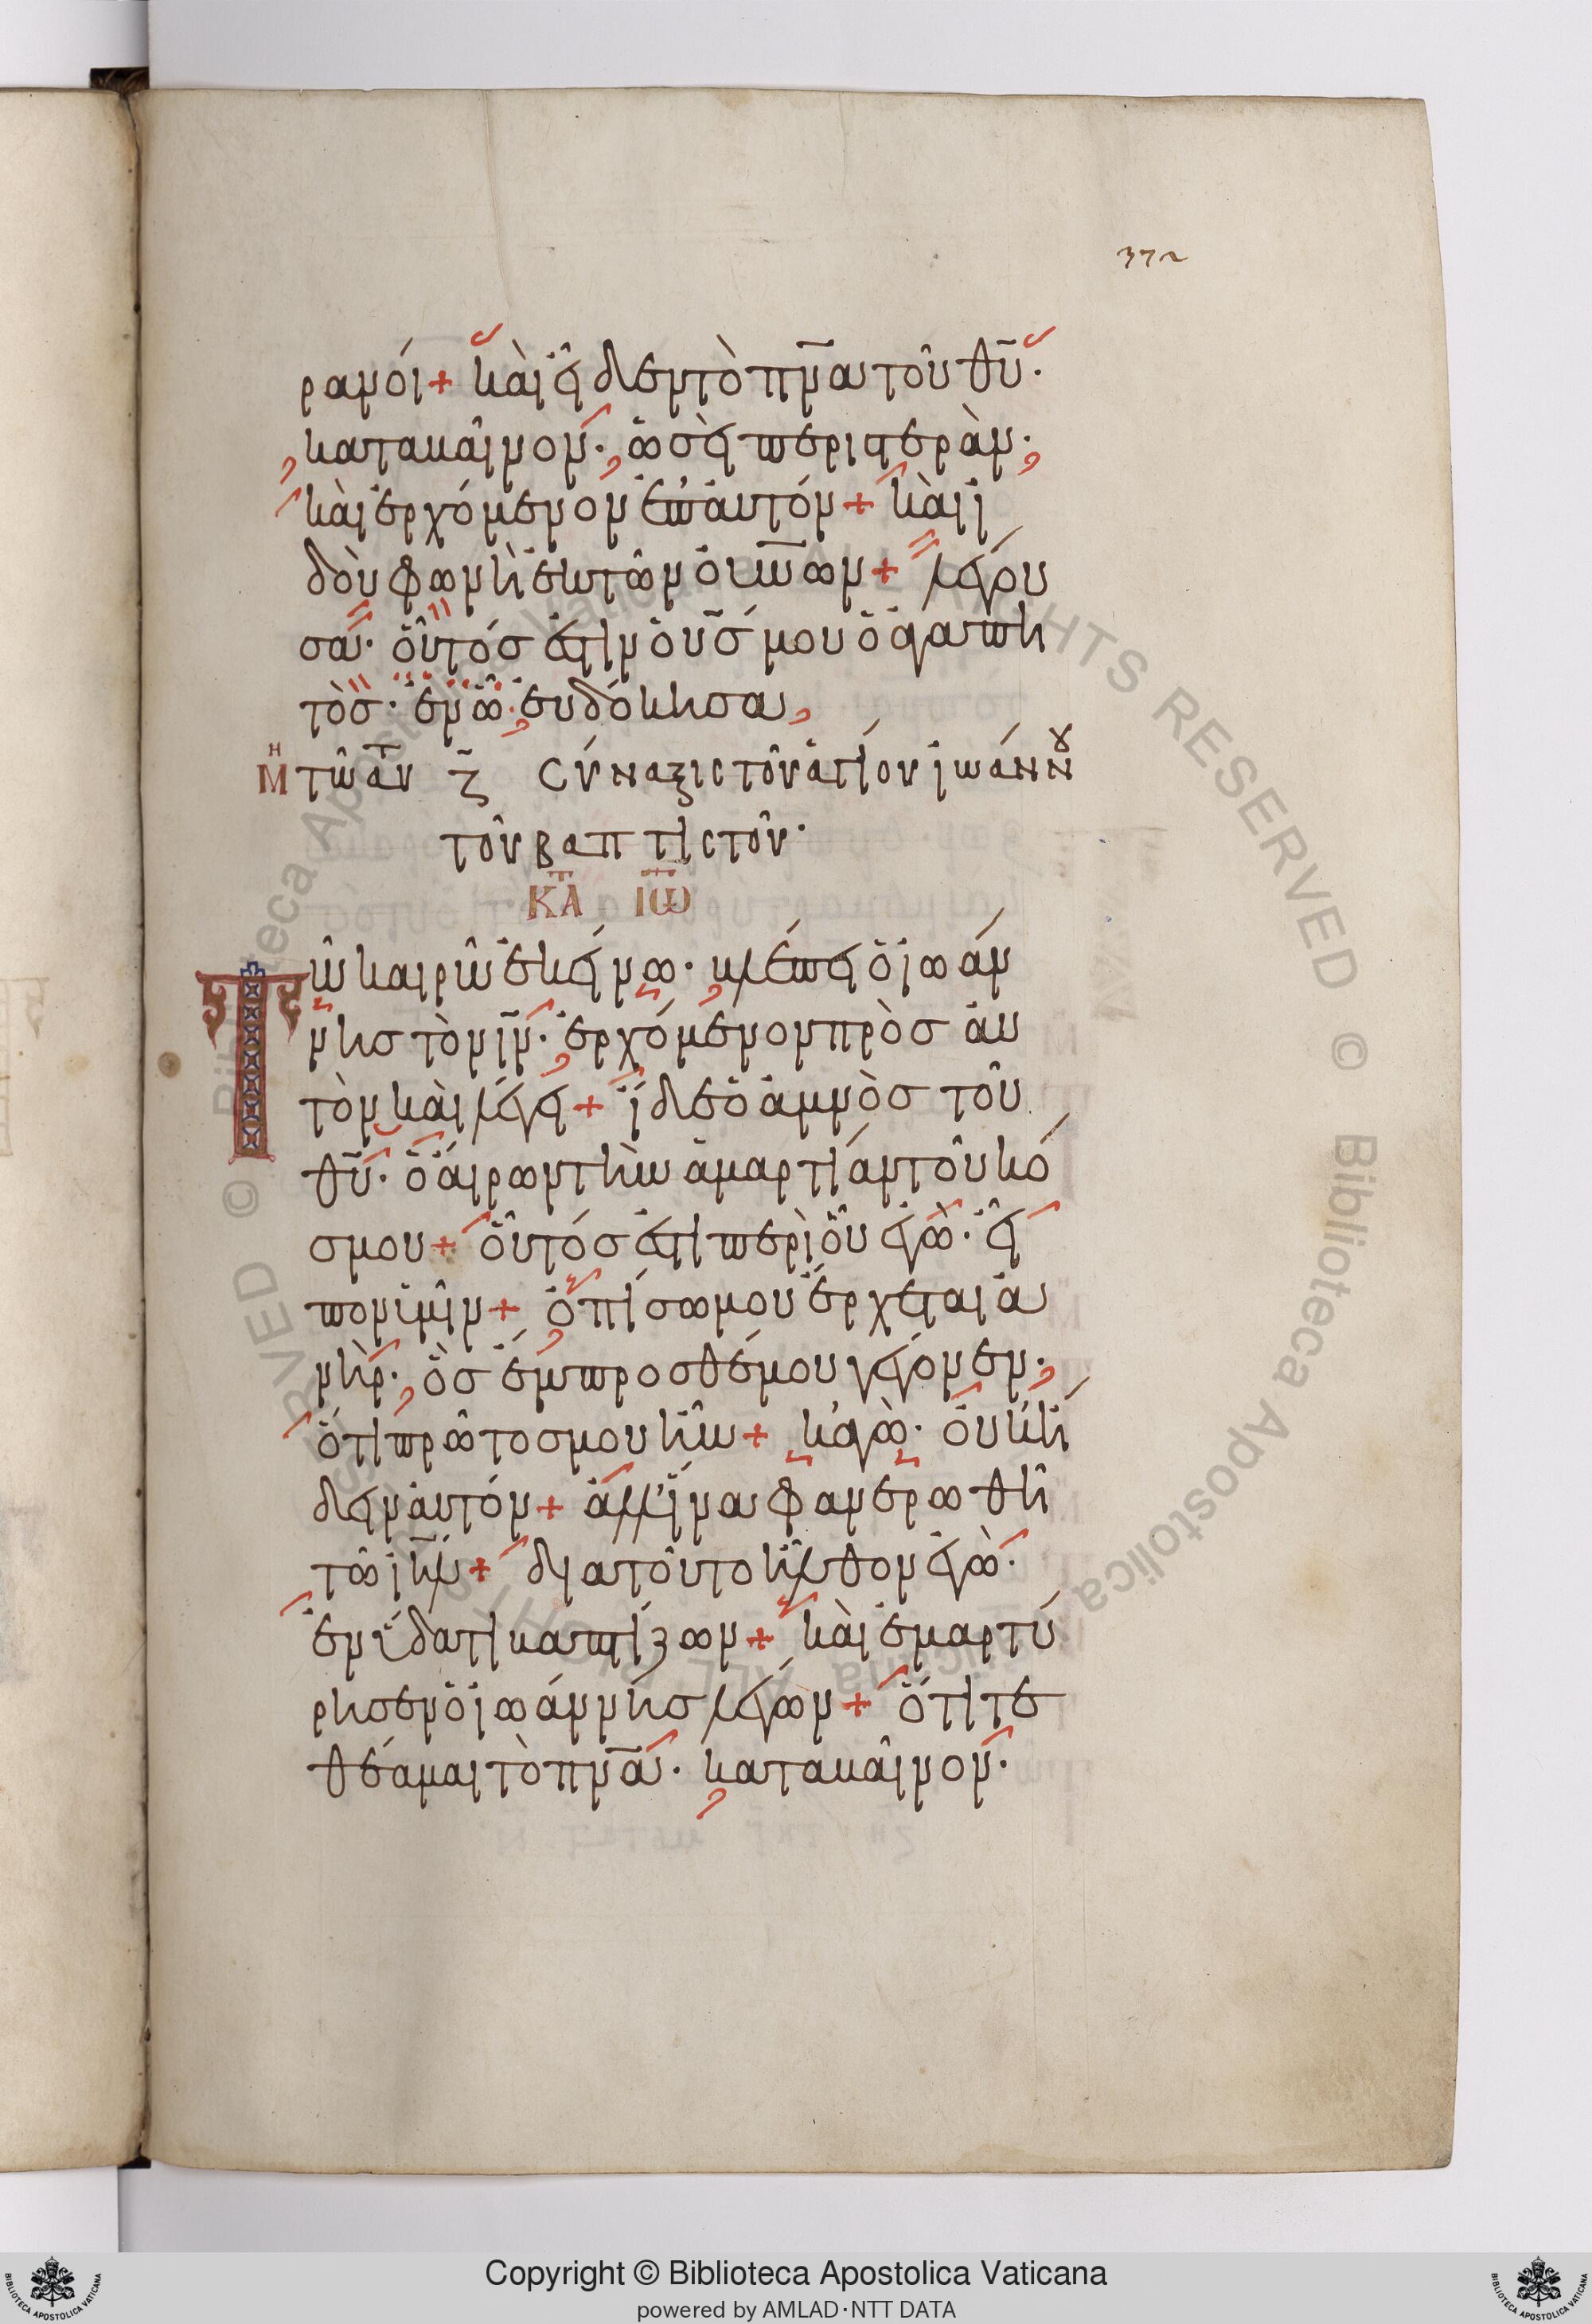 372
ρανοί + καὶ εἶδεν τὸ πν̅α τοῦ θ̅υ̅·
καταβαῖνον· ὡσεὶ περιστερὰν·
καὶ ἐρχόμενον ἐπ' αὐτόν + καὶ ἰ
δοὺ φωνὴ ἐκ τῶν οὐν̅ων + λέγου
σα· οὗτός ἐστιν ὁ υ̅σ̅ μου ὁ ἀγαπη
τὸς· ἐν ὧ· εὐδόκησα
Μη τῶ αυ ζ Σύναξις τοῦ ἁγίου ἰωάννου
τοῦ βαπτιστοῦ·
ΚΑΤ ΙΩ
Τῶ καιρῶ ἐκείνω· βλέπει ὁ ἰωάν
νης τὸν ι̅ν̅· ἐρχόμενον πρὸς αὐ
τὸν καὶ λέγει + ἴδε ὁ ἀμνὸς τοῦ
θ̅υ̅· ὁ αἴρων τὴν ἁμαρτίαν τοῦ κό
σμου + οὗτός ἐστι περὶ οὗ ἐγὼ· εἶ
πον ὑμῖν + ὀπίσω μου ἔρχεται ἀ
νὴρ· ὃς ἔμπροσθέν μου γέγονεν·
ὅτι πρῶτος μου ἦν + κἀγὼ· οὐκ ἤ
δειν αὐτόν + ἀλλ' ἵνα φανερωθῆ
τῶ ι̅η̅λ̅ + διατοῦτο ἦλθον ἐγὼ·
ἐν ὕδατι βαπτίζων + καὶ ἐμαρτύ
ρησεν ὁ ἰωάννης λέγων + ὅτι τε
θέαμαι τὸ πν̅α· καταβαῖνον·
Copyright © Biblioteca Apostolica Vaticana
powered by AMLAD·NTT DATA